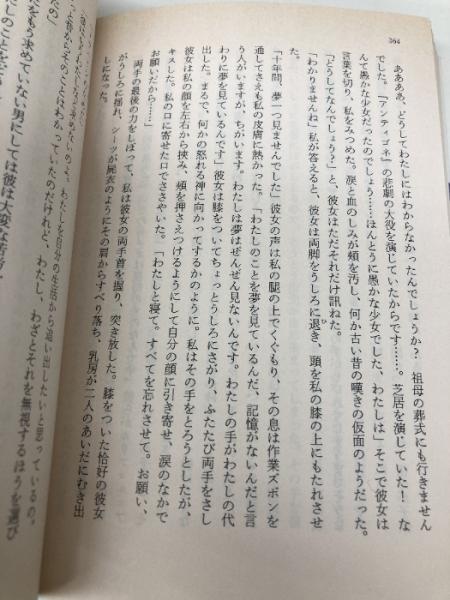 364
ああああ、どうしてわたしにはわからなかったんでしょうか? 祖母の葬式にも行きません
でした。『アンティゴネ』の悲劇の大役を演じていたからです……。芝居を演じていた! な
んて愚かな少女だったのでしょう……ほんとうに愚かな少女でした、わたしは」そこで彼女は
言葉を切り、私をみつめた。涙と血のしみが頬を汚し、何か古い昔の嘆きの仮面のようだった。
「どうしてなんでしょう?」と、彼女はただそれだけ訊ねた。
「わかりませんね」私が答えると、彼女は両脚をうしろに退き、頭を私の膝の上にもたれさせ
た。
「十年間、夢一つ見ませんでした」彼女の声は私の腿の上でくぐもり、その息は作業ズボンを
通してさえも私の皮膚に熱かった。「わたしのことを夢を見ているんだ、記憶がないんだと言
う人がいますが、ちがいます。わたしは夢はぜんぜん見ないんです。わたしの手がわたしの代
わりに夢を見ているんです」彼女は膝をついてちょっとうしろにさがり、ふたたび両手をさし
出した。まるで、何かの怒れる神に向かってするかのように。私はその手をとろうとしたが、
彼女は私の顔を左右から挟み、頬を押さえつけるようにして自分の顔に引き寄せ、涙のなかで
キスした。私の口に寄せた口でささやいた。「わたしと寝て。すべてを忘れさせて。お願い、
お願いだから……」
両手に最後の力をしぼって、私は彼女の両手首を握り、突き放した。膝をついた恰好の彼女
がうしろに揺れ、シーツが屍衣のようにその肩からすべり落ち、乳房が二人のあいだにむき出
しになった。
わたしを自分の生活から追い出したいと思っているの。
そのことはわかっていたのだけれど、わたし、わざとそれを無視するほうを選び
をもう求めていない男にしては彼は大変な